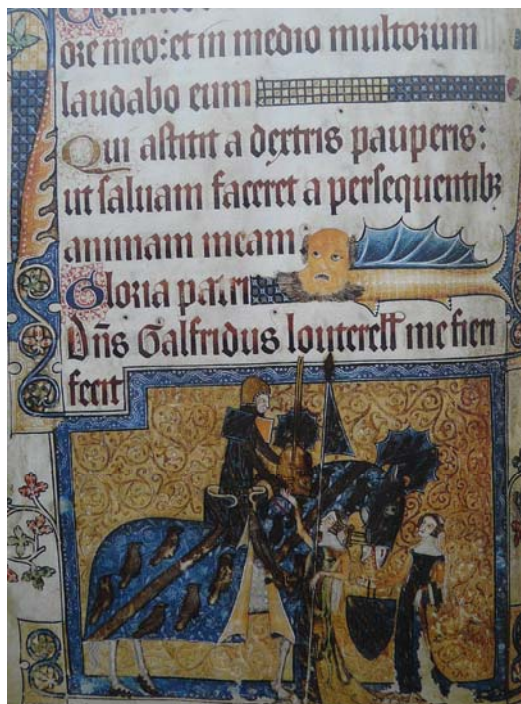 ore meo: et in medio multorum
laudabo eum
Qui astitit a dextris pauperis:
ut saluam faceret a persequentibꝫ
animam meam
Gloria patri
Dñs Galfridus louterell me fieri
fecit